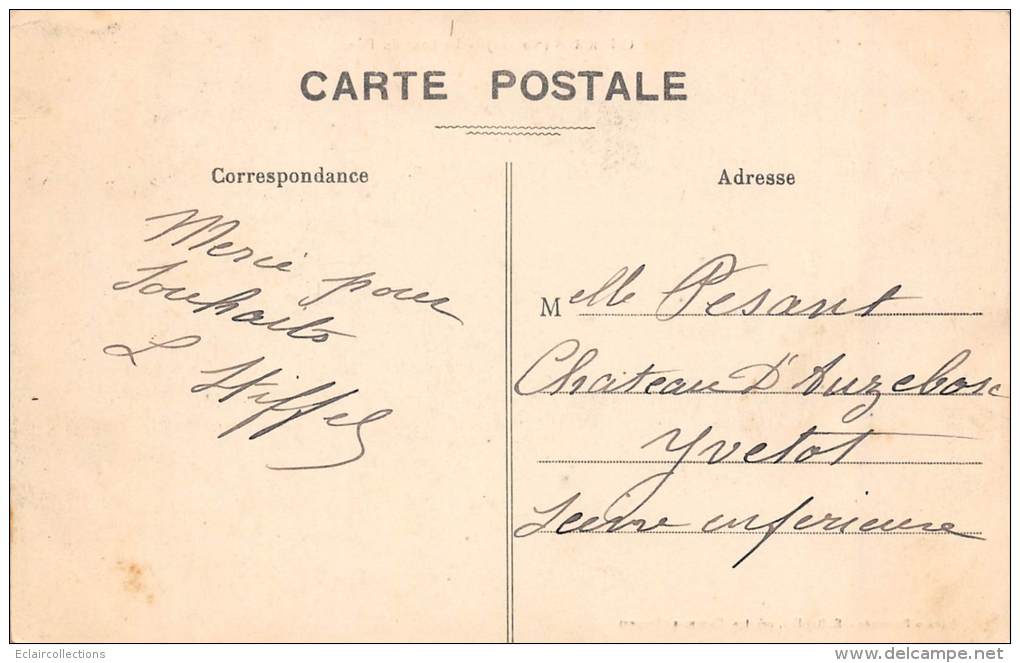 CARTE POSTALE
Correspondance
Merie pour
souhaits
L Stiffel
Adresse
Melle Pesant
Chateau D'Auzebosc
Yvetot
Seine inferieure
Eclaircollections
www.delcampe.net